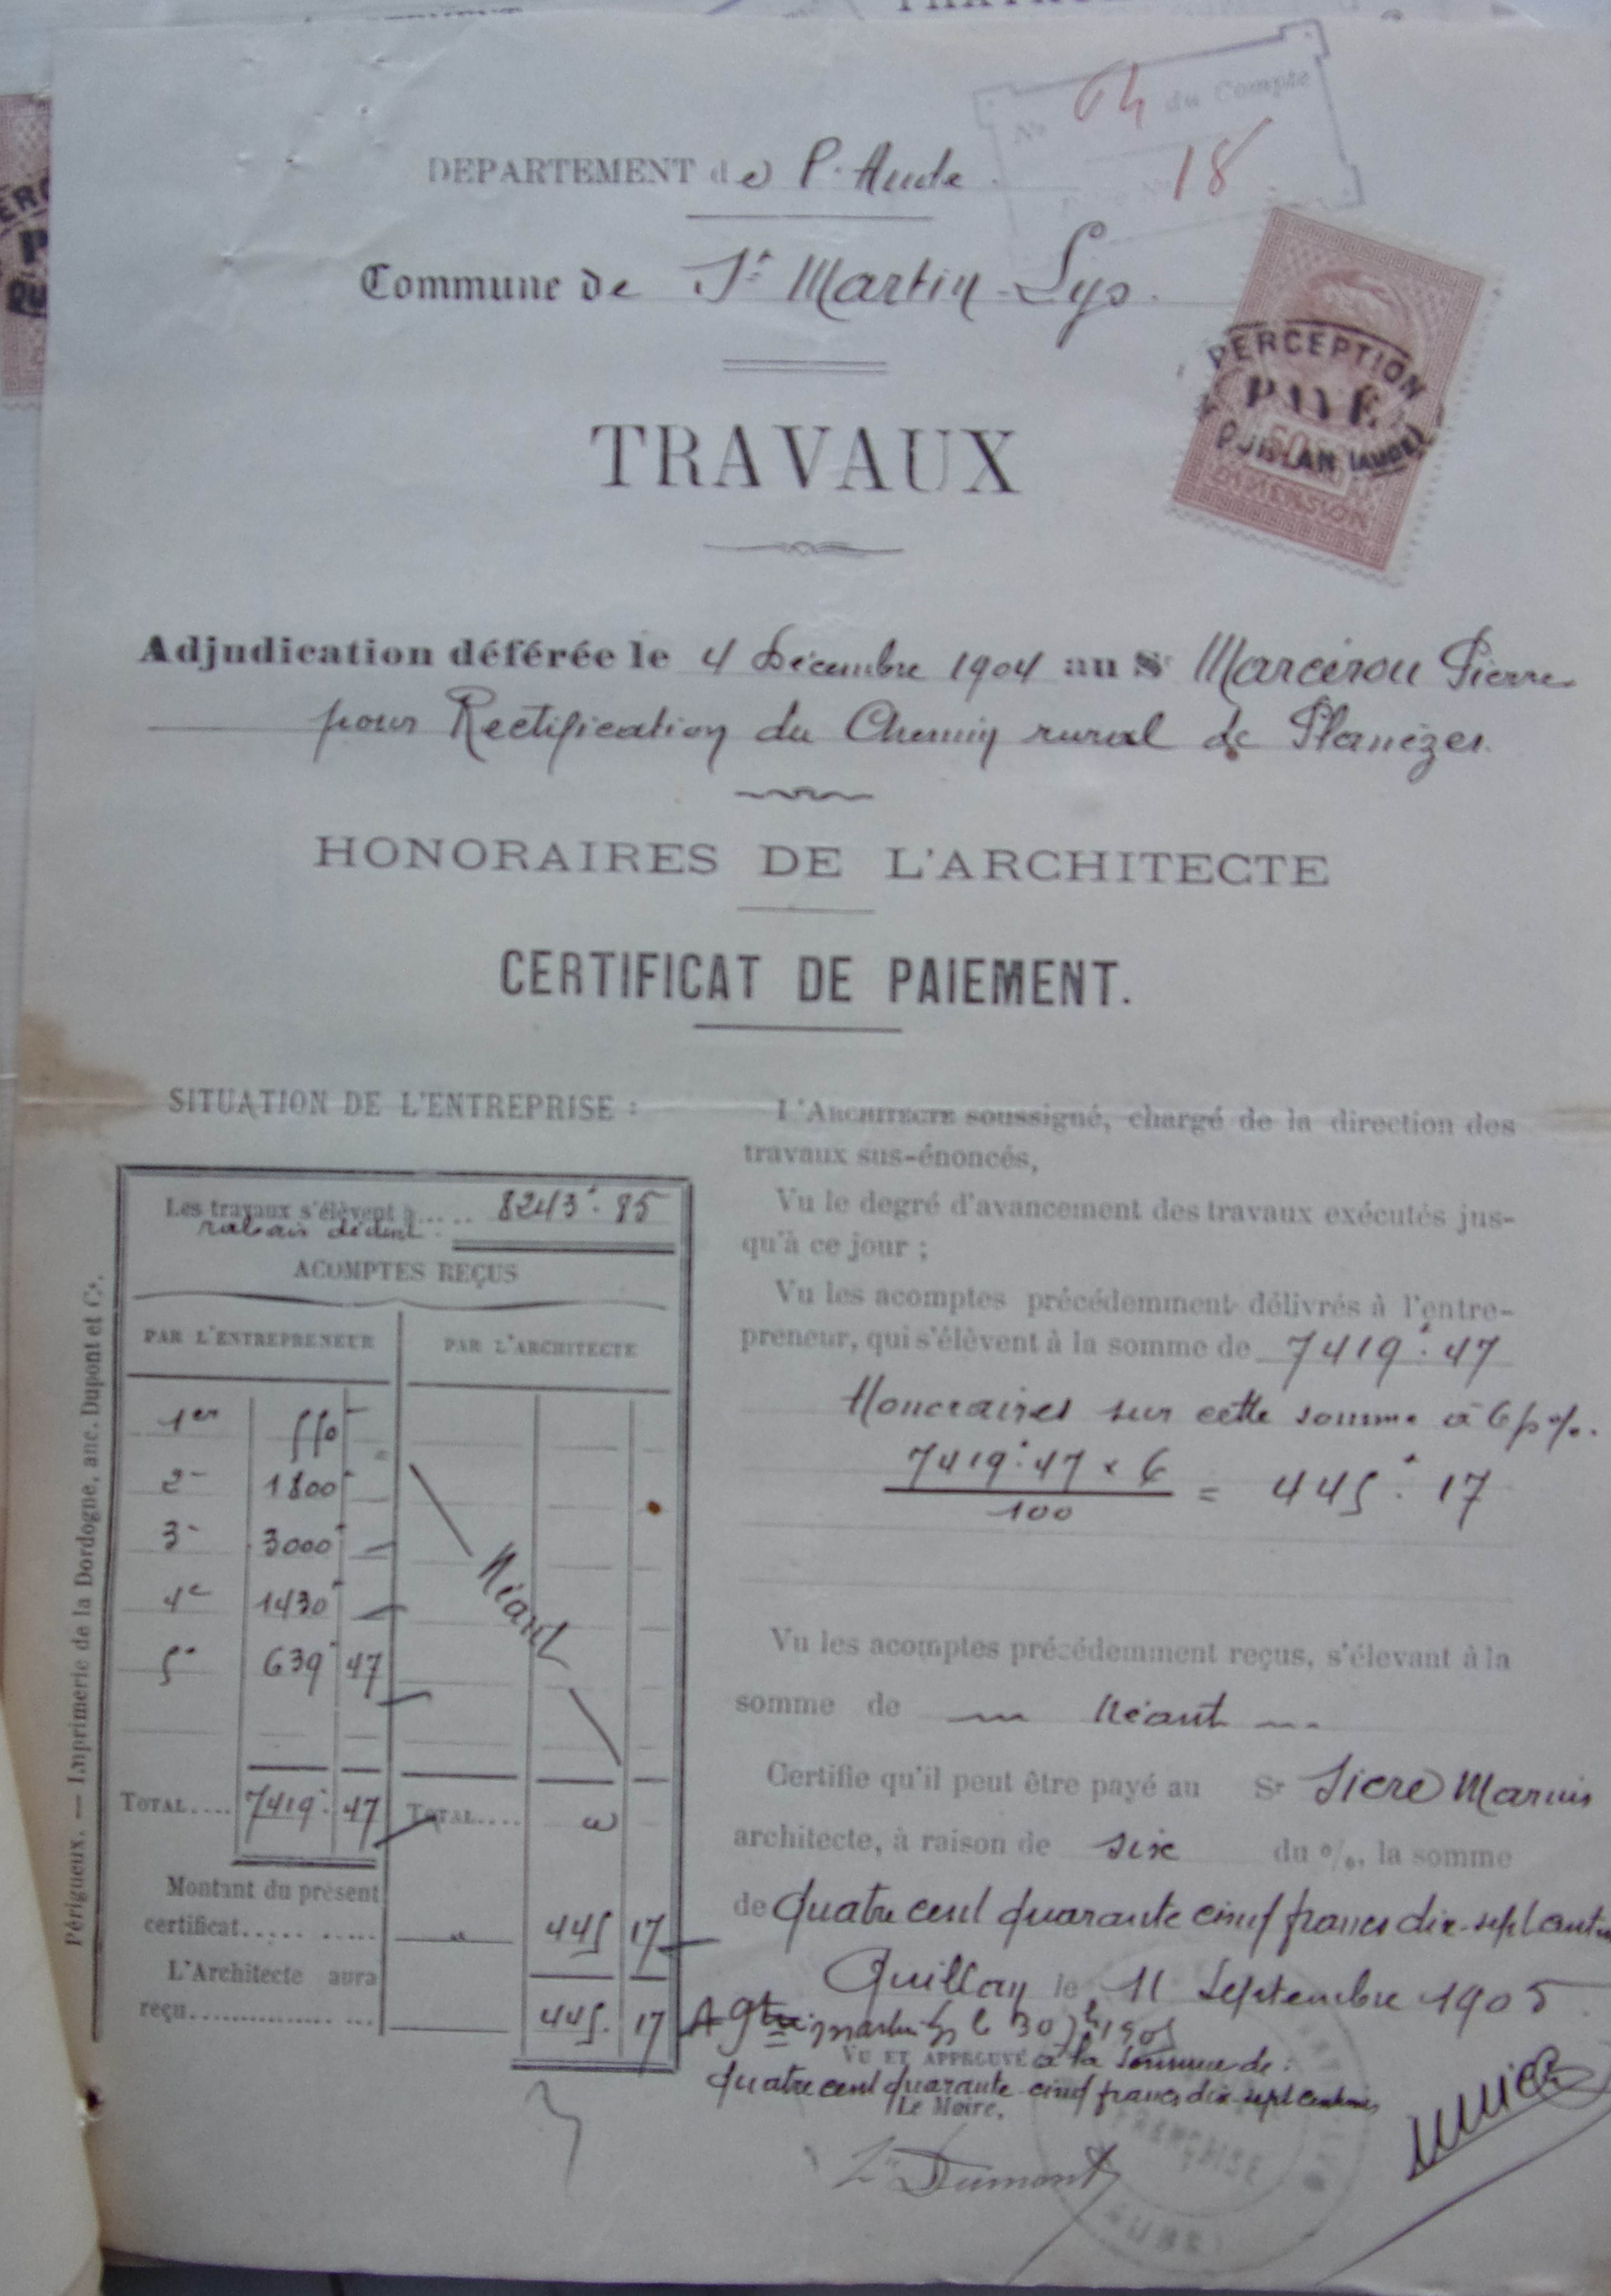 No 64 du Compte
18
DEPARTEMENT de l'Aude
Commune de St Martin-Lys.
PERCEPTION
PAYÉ
QUILLAN (AUDE)
50
DIMENSION
TRAVAUX
Adjudication déférée le 4 Décembre 1904 au Sr Marcérou Pierre
pour Rectification du Chemin rural de Planèzes.
HONORAIRES DE L'ARCHITECTE
CERTIFICAT DE PAIEMENT.
SITUATION DE L'ENTREPRISE :
Les travaux s'élèvent à..... 8243f.85
rabais déduit.
ACOMPTES REÇUS
PAR L'ENTREPRENEUR PAR L'ARCHITECTE
1er 550 =
2e 1800
3e 3000
4e 1430
5e 639 47
Néant
TOTAL.... 7419. 47 TOTAL.... "
Montant du présent
certificat..... ..... " 445 17
L'Architecte aura
reçu................. 445. 17
Périgueux. — Imprimerie de la Dordogne, anc. Dupont et Cie.
L'ARCHITECTE soussigné, chargé de la direction des
travaux sus-énoncés,
Vu le degré d'avancement des travaux exécutés jus-
qu'à ce jour ;
Vu les acomptes précédemment délivrés à l'entre-
preneur, qui s'élèvent à la somme de 7419f.47
Honoraires sur cette somme à 6 p%.
7419f.47 × 6
100
= 445f.17
Vu les acomptes précédemment reçus, s'élevant à la
somme de Néant
Certifie qu'il peut être payé au Sr Sicre Marius
architecte, à raison de six du %, la somme
de quatre cent quarante cinq francs dix-sept
Quillan le 11 Septembre 1905
A St Martin Lys le 30 7bre 1905
VU ET APPROUVÉ à la somme de :
quatre cent quarante-cinq francs dix-sept centimes
Le Maire,
Dumont
FRANÇAISE